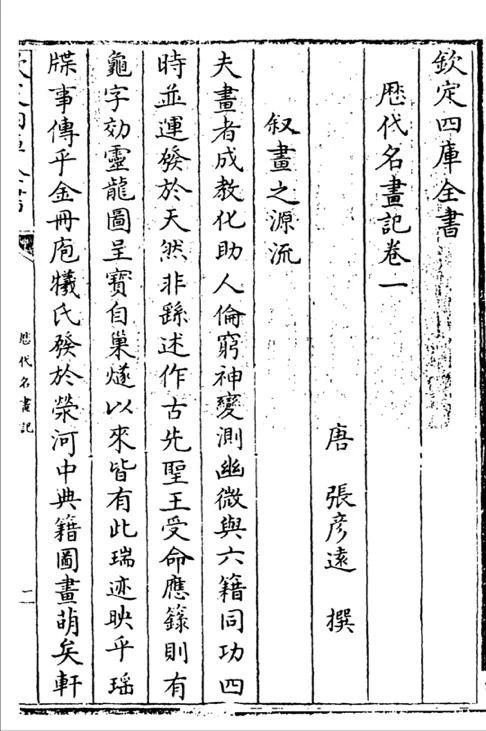 欽定四庫全書
歴代名畫記卷一
唐 張彦遠 撰
叙畫之源流
夫畫者成教化助人倫窮神變測幽微與六籍同功四
時並運發於天然非繇述作古先聖王受命應籙則有
龜字効靈龍圖呈寳自巢燧以來皆有此瑞迹映乎瑶
牒事傳乎金冊庖犧氏發於榮河中典籍圖畫萌矣軒
歴代名畫記
二